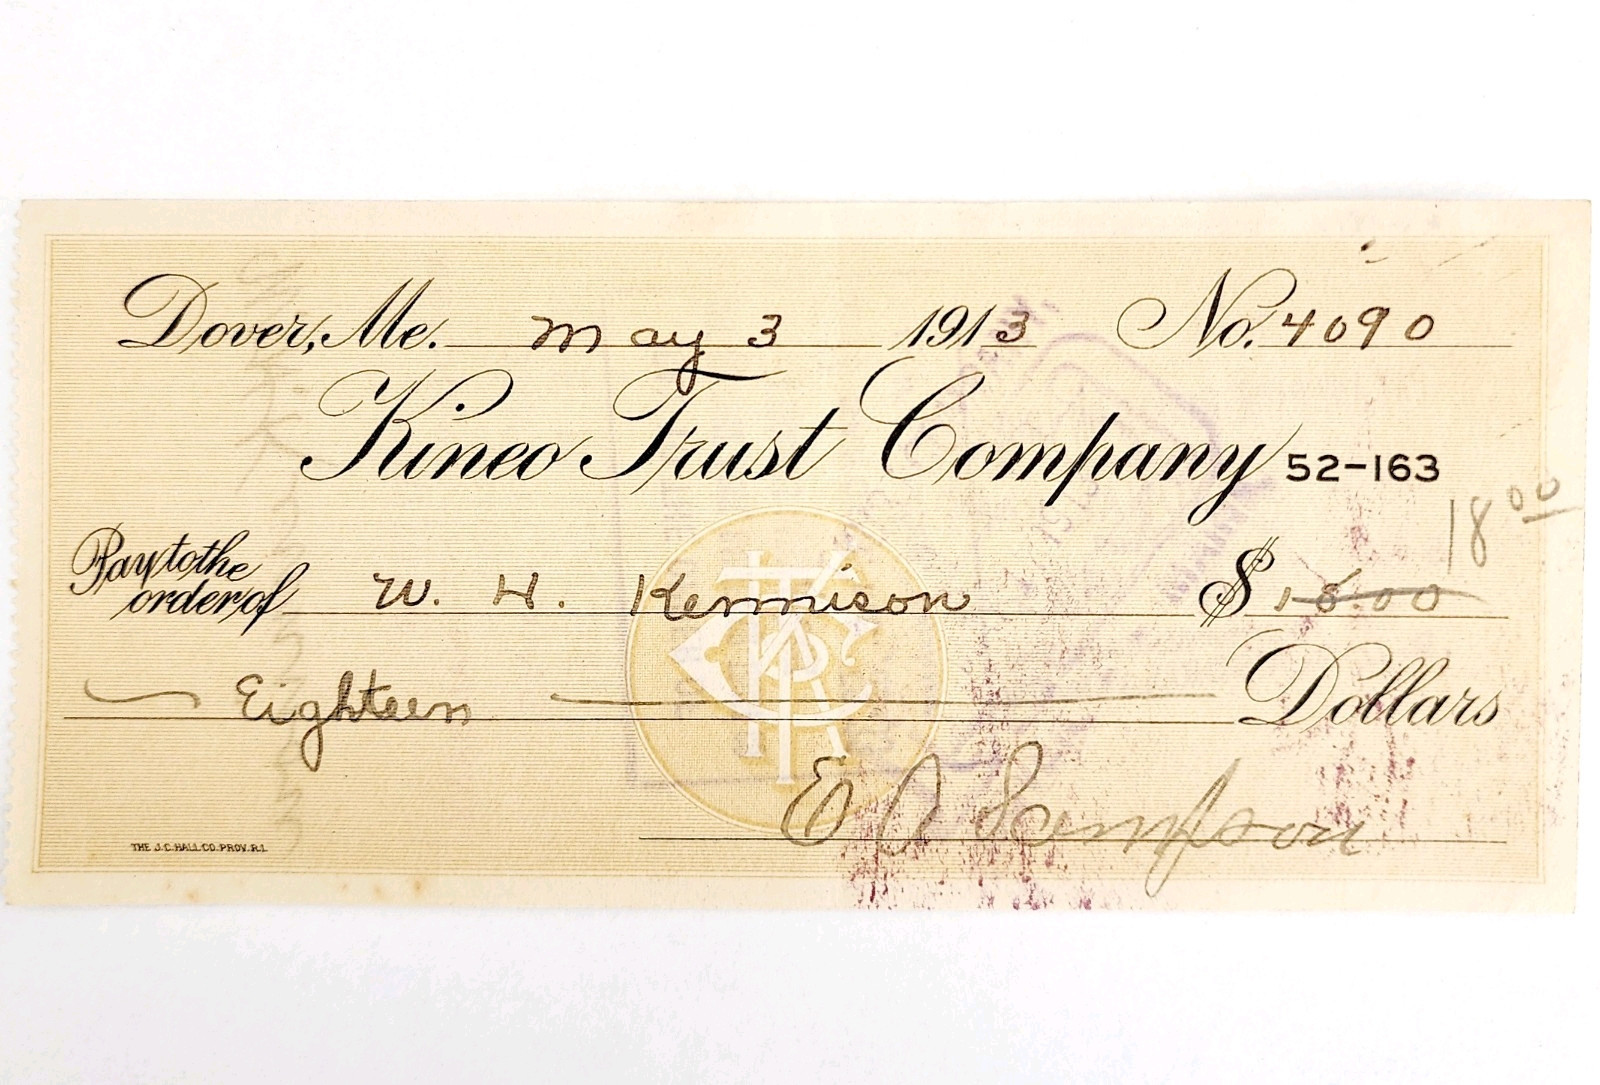 Dover, Me. May 3 1913 No. 4090
Kineo Trust Company 52-163
18 00
Pay to the order of W. H. Kennison $ 18.00
Eighteen Dollars
E J Sampson
THE J.C. HALL CO. PROV. R.I.